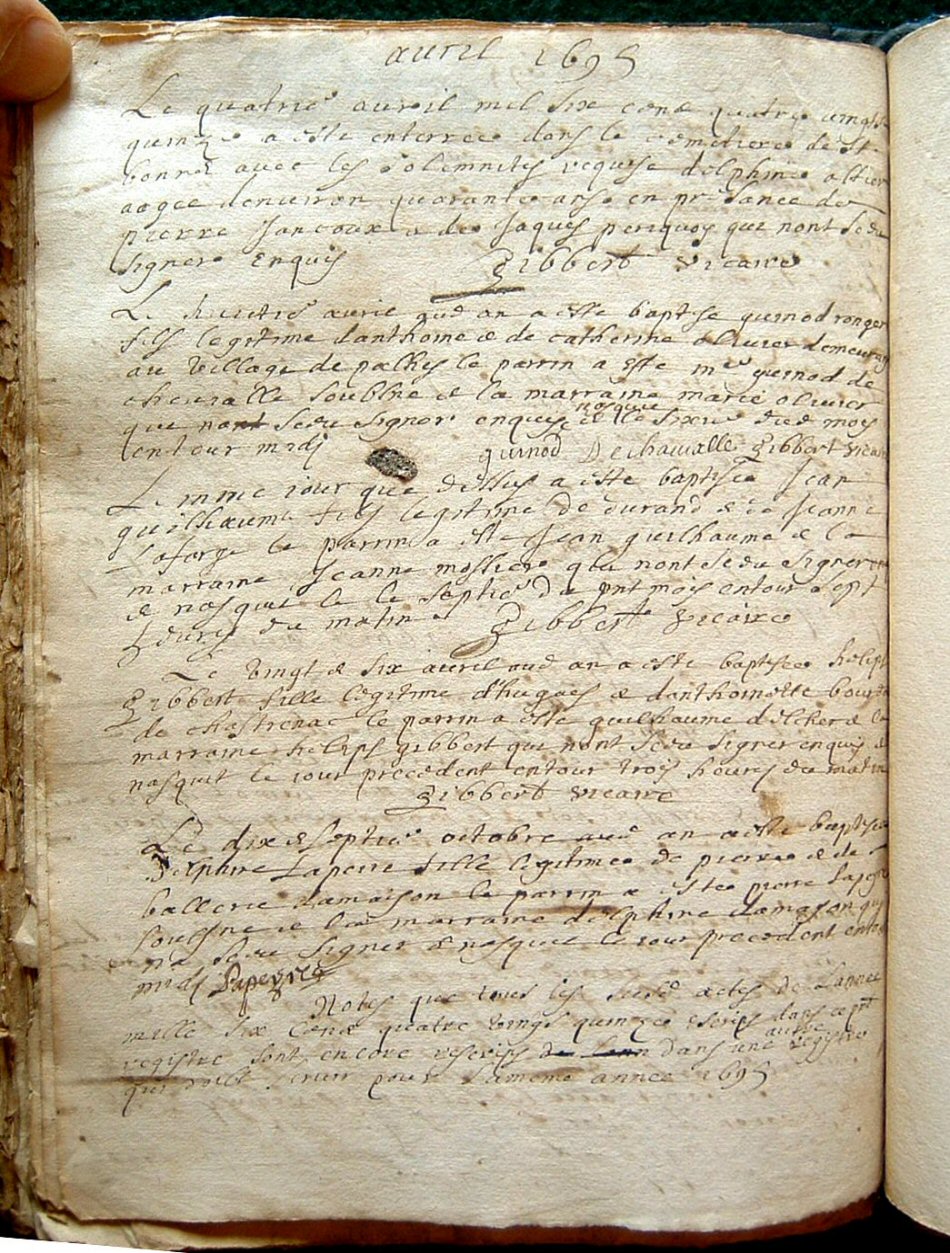 avril 1695
Le quatrie avril mil six cens quatre vingts
quinze a este enterree dans le cemetiere de st
bonnet avec les solemnites requise delphine
aagee denviron quarante ans en presance de
pierre Jancoux & de Jaques periquos qui nont sceu
signer Enquis Gibbert vicaire
Le huictie avril sud an a este baptise guinod ronger
fils legitime danthoine & de catherine olivier demeurant
au village de le parrin a este me guinod de
chevialle soubsne & la marraine marie olivier
que nont sceu signer enquis & nasquit le sixie dud mois
entour midj guinod Dechavialle Gibbert vicaire
Le mme iour que dessus a este baptise Jean
guilhaume fils legitime de durand & de Jeanne
Laforge le parrin a este Jean guilhaume & la
marraine Jeanne mossiere qui nont sceu signer
& nasquit le le septie du pnt mois entour sept
heures du matin Gibbert vicaire
Le vingt & six avril sud an a este baptisee helips
Gibbert fille legitime d'hugues & danthoinette
de chastrenac le parrin a este guilhaume & la
marraine helips gibbert qui nont sceu signer enquis &
nasquit le iour precedent entour trois heures du matin
Gibbert vicaire
Le dix & septie octobre sud an a este baptisee
Delphine Lapeire fille legitime de pierre & de
ballerie Lamaison le parrin a este pierre
soubsne & la marraine delphine Lamaison qui
na sceu signer & nasquit le iour precedent entour
midj Lapeyre
Notes que tous les susd actes de Lannee
mille six cens quatre vings quinze escrips dans ce pnt
registre sont encore rescrips dans une autre registre
qui doibt servir pour la meme annee 1695